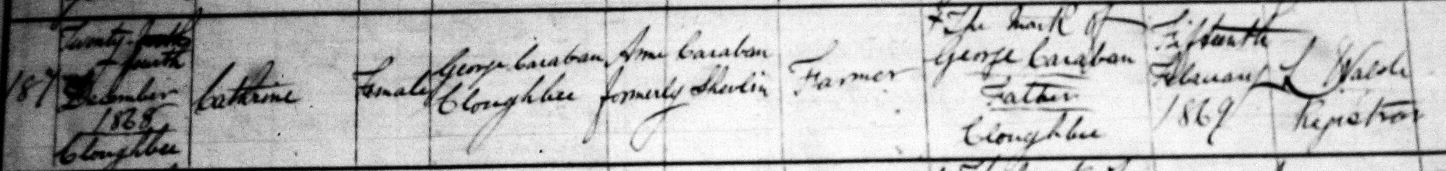 187
Twenty-fourth
December
1868
Cloughbee
Cathrine
Female
George Caraban
Cloughbee
Anne Caraban
formerly Shevlin
Farmer
X The Mark of
George Caraban
Father
Cloughbee
Fifteenth
February
1869
L Walsh
Registrar